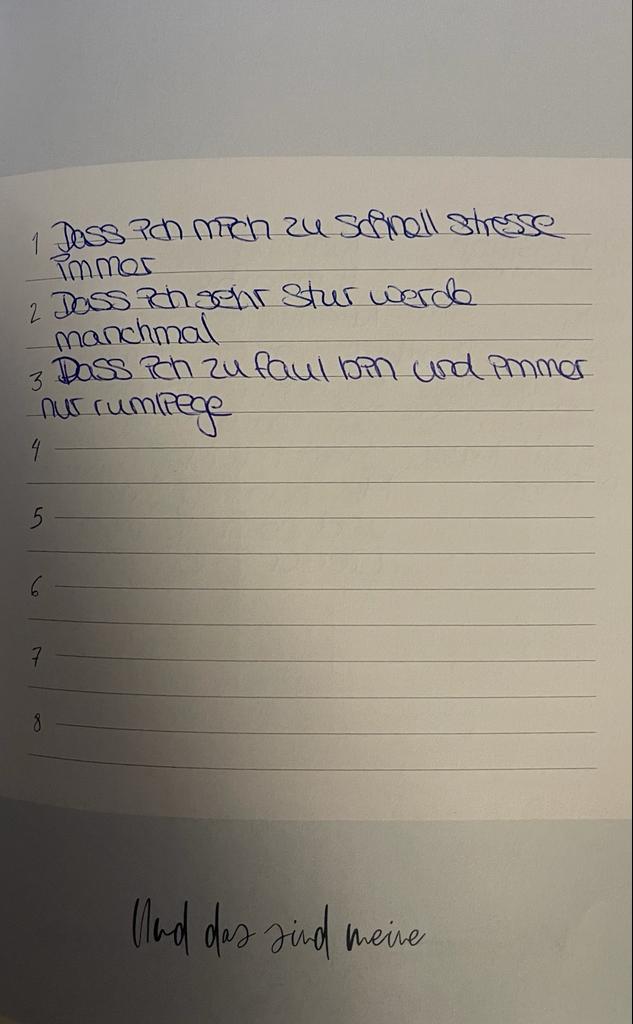 1 Dass ich mich zu schnell stresse
immer
2 Dass ich sehr stur werde
manchmal
3 Dass ich zu faul bin und immer
nur rumliege
4
5
6
7
8
Und das sind meine